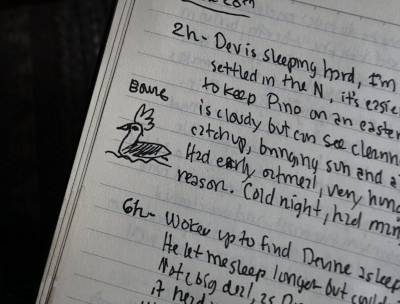 2h- Dev is sleeping hard, I'm
settled in the N, it's easie
to keep Pino on an easter
is cloudy but can see clearin
catch up, bringing sun and a
Had early oatmeal, very hung
reason. Cold night, had min
6h- Woke up to find Devine asleep
He let me sleep longer but could
Not a big deal, as
it